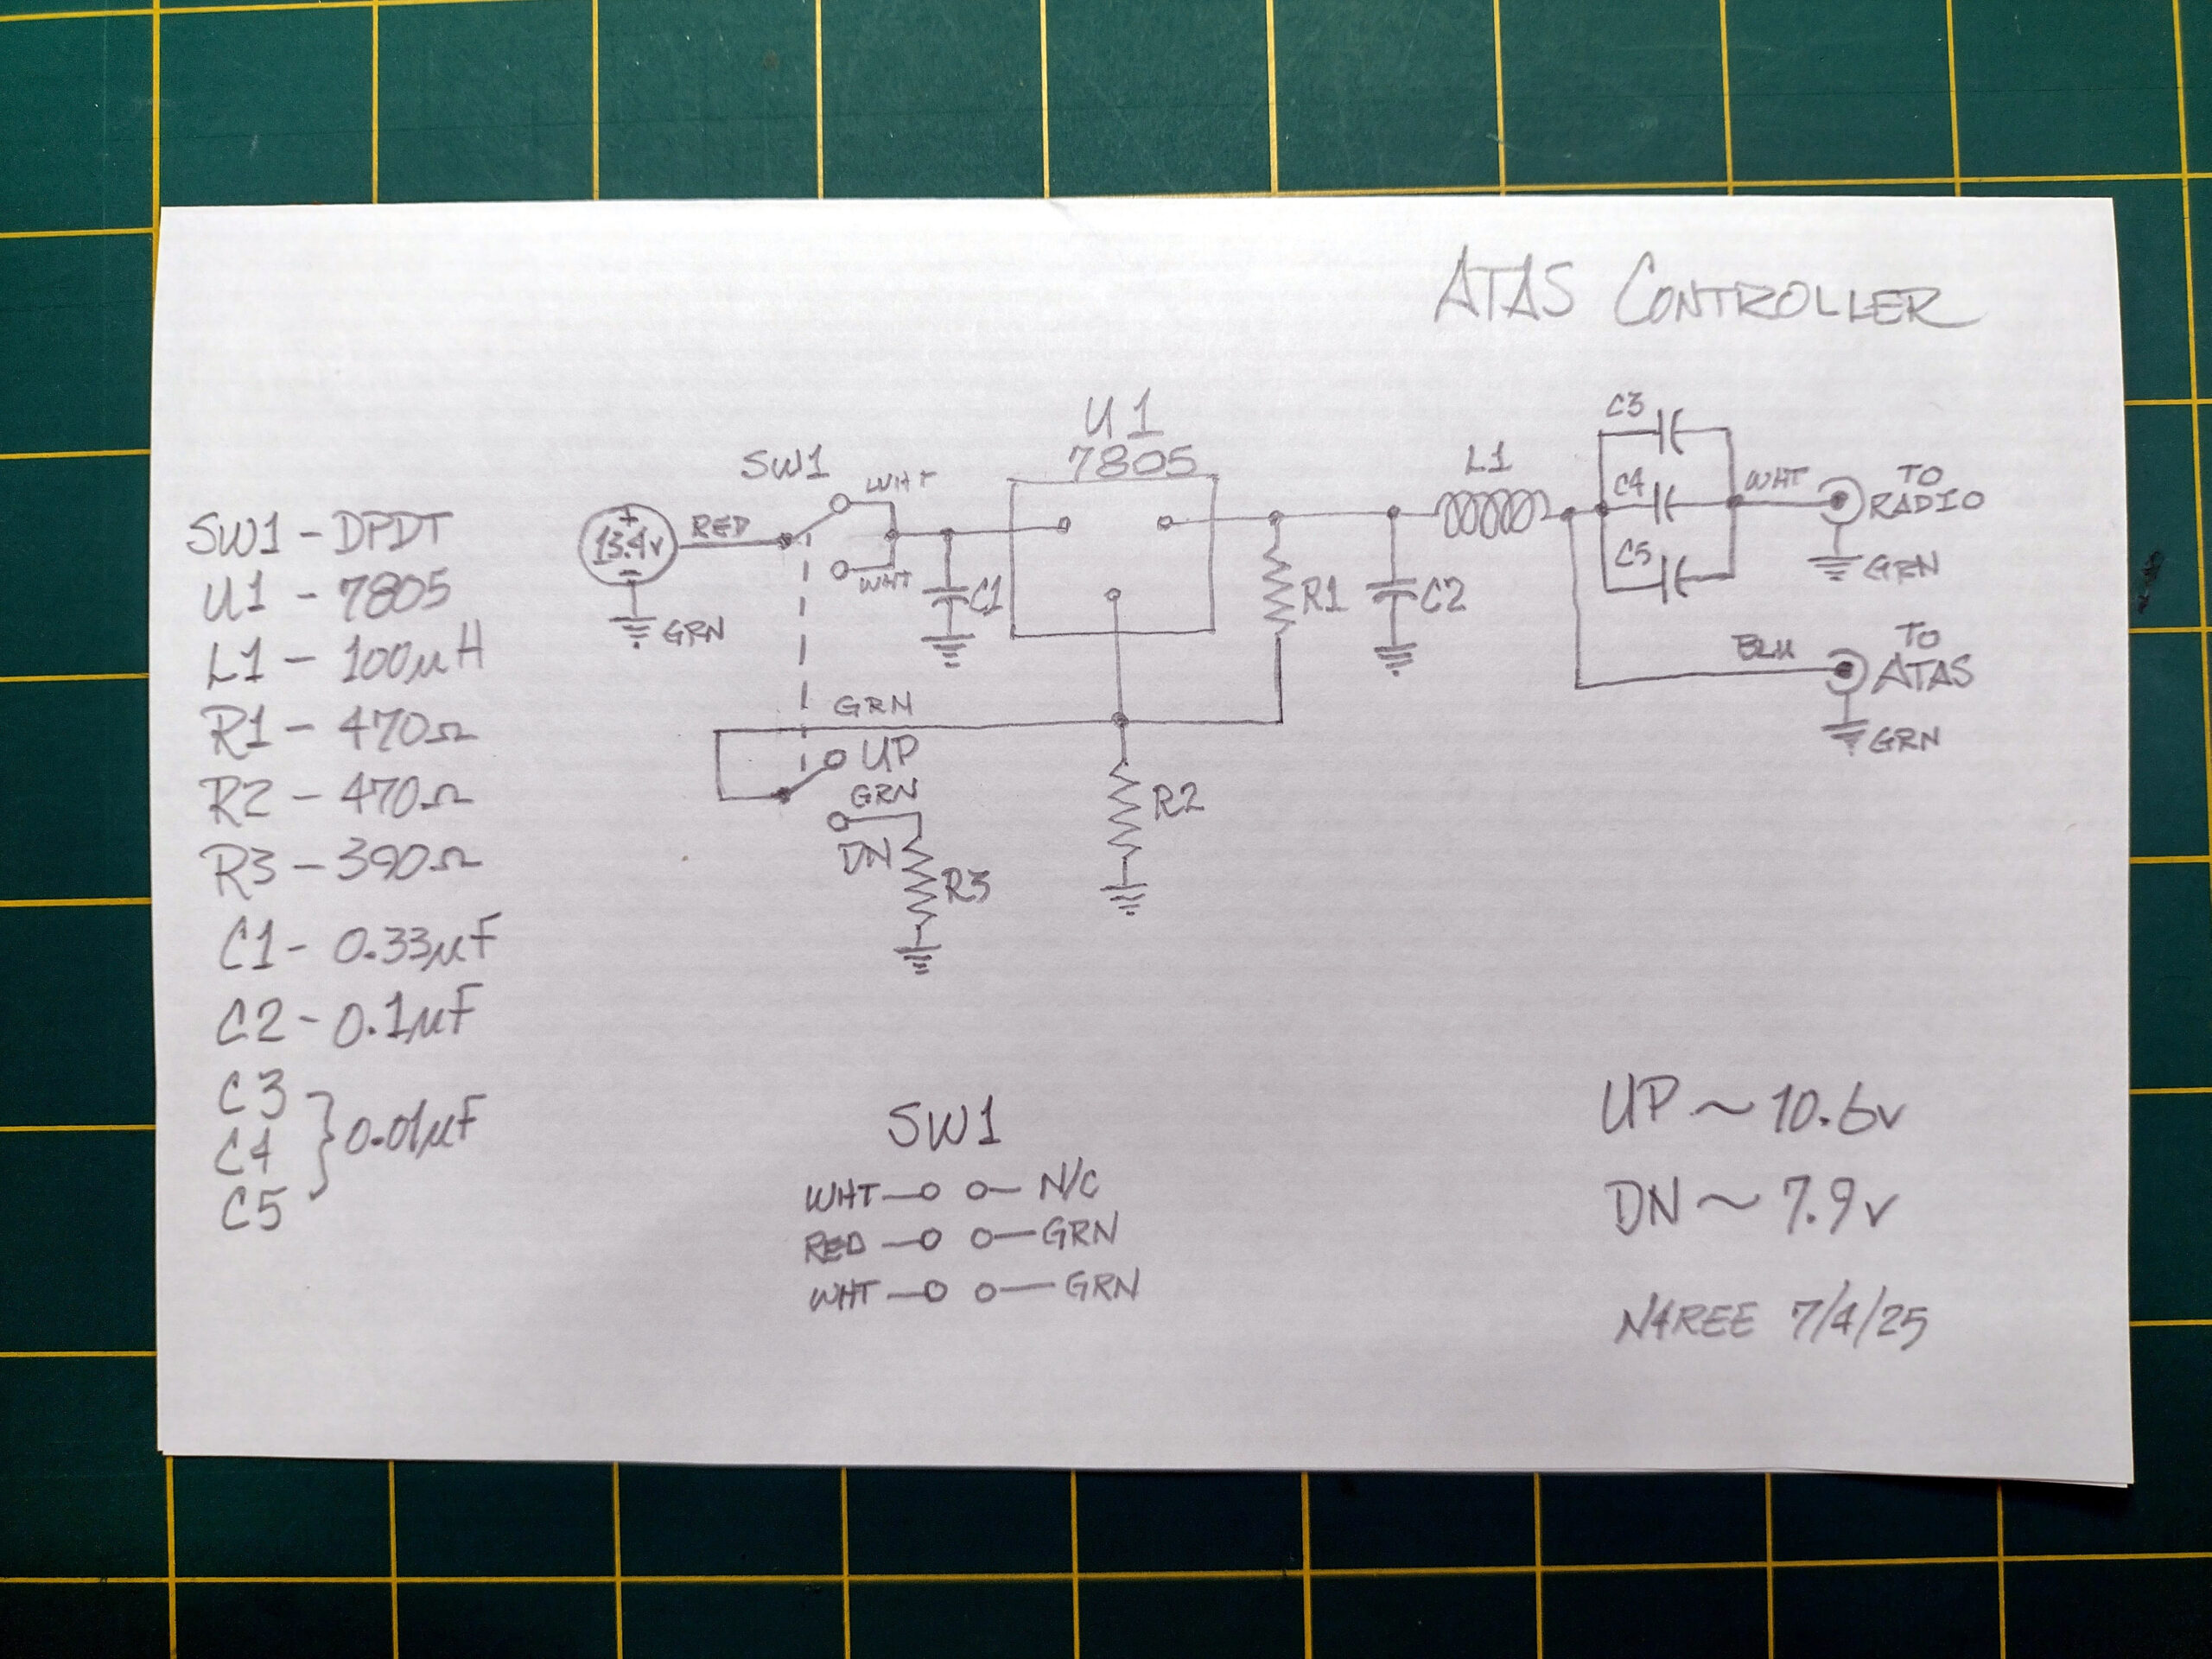 ATAS CONTROLLER
SW1 - DPDT
U1 - 7805
L1 - 100µH
R1 - 470Ω
R2 - 470Ω
R3 - 390Ω
C1 - 0.33µF
C2 - 0.1µF
C3
C4 } 0.01µF
C5
13.4v
+
-
RED
GRN
SW1
WHT
WHT
C1
U1
7805
R1
C2
L1
C3
C4
C5
WHT
TO
RADIO
GRN
BLU
TO
ATAS
GRN
GRN
UP
GRN
DN
R3
R2
SW1
WHT N/C
RED GRN
WHT GRN
UP ~ 10.6v
DN ~ 7.9v
N4REE 7/4/25